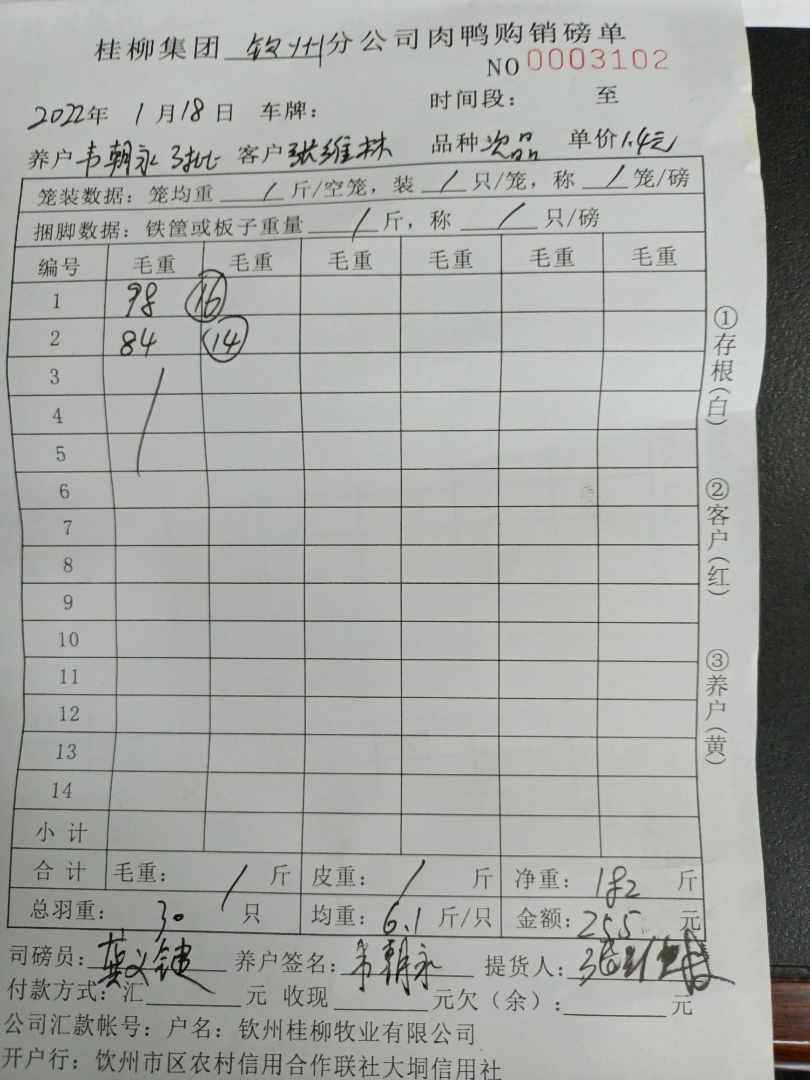 桂柳集团 钦州分公司肉鸭购销磅单
NO 0003102
2022年 1月18日 车牌： 时间段： 至
养户韦朝永3批 客户张维林 品种次品 单价1.4元
笼装数据：笼均重 / 斤/空笼，装 / 只/笼，称 / 笼/磅
捆脚数据：铁筐或板子重量 / 斤，称 / 只/磅
编号 毛重 毛重 毛重 毛重 毛重 毛重
1 98 16
2 84 14
3 /
4
5
6
7
8
9
10
11
12
13
14
小 计
合 计 毛重： / 斤 皮重： / 斤 净重：182 斤
总羽重： 30 只 均重：6.1 斤/只 金额：255 元
司磅员： 养户签名：韦朝永 提货人：
付款方式：汇 元 收现 元欠（余）： 元
公司汇款帐号：户名：钦州桂柳牧业有限公司
开户行：钦州市区农村信用合作联社大垌信用社
①存根（白）
②客户（红）
③养户（黄）